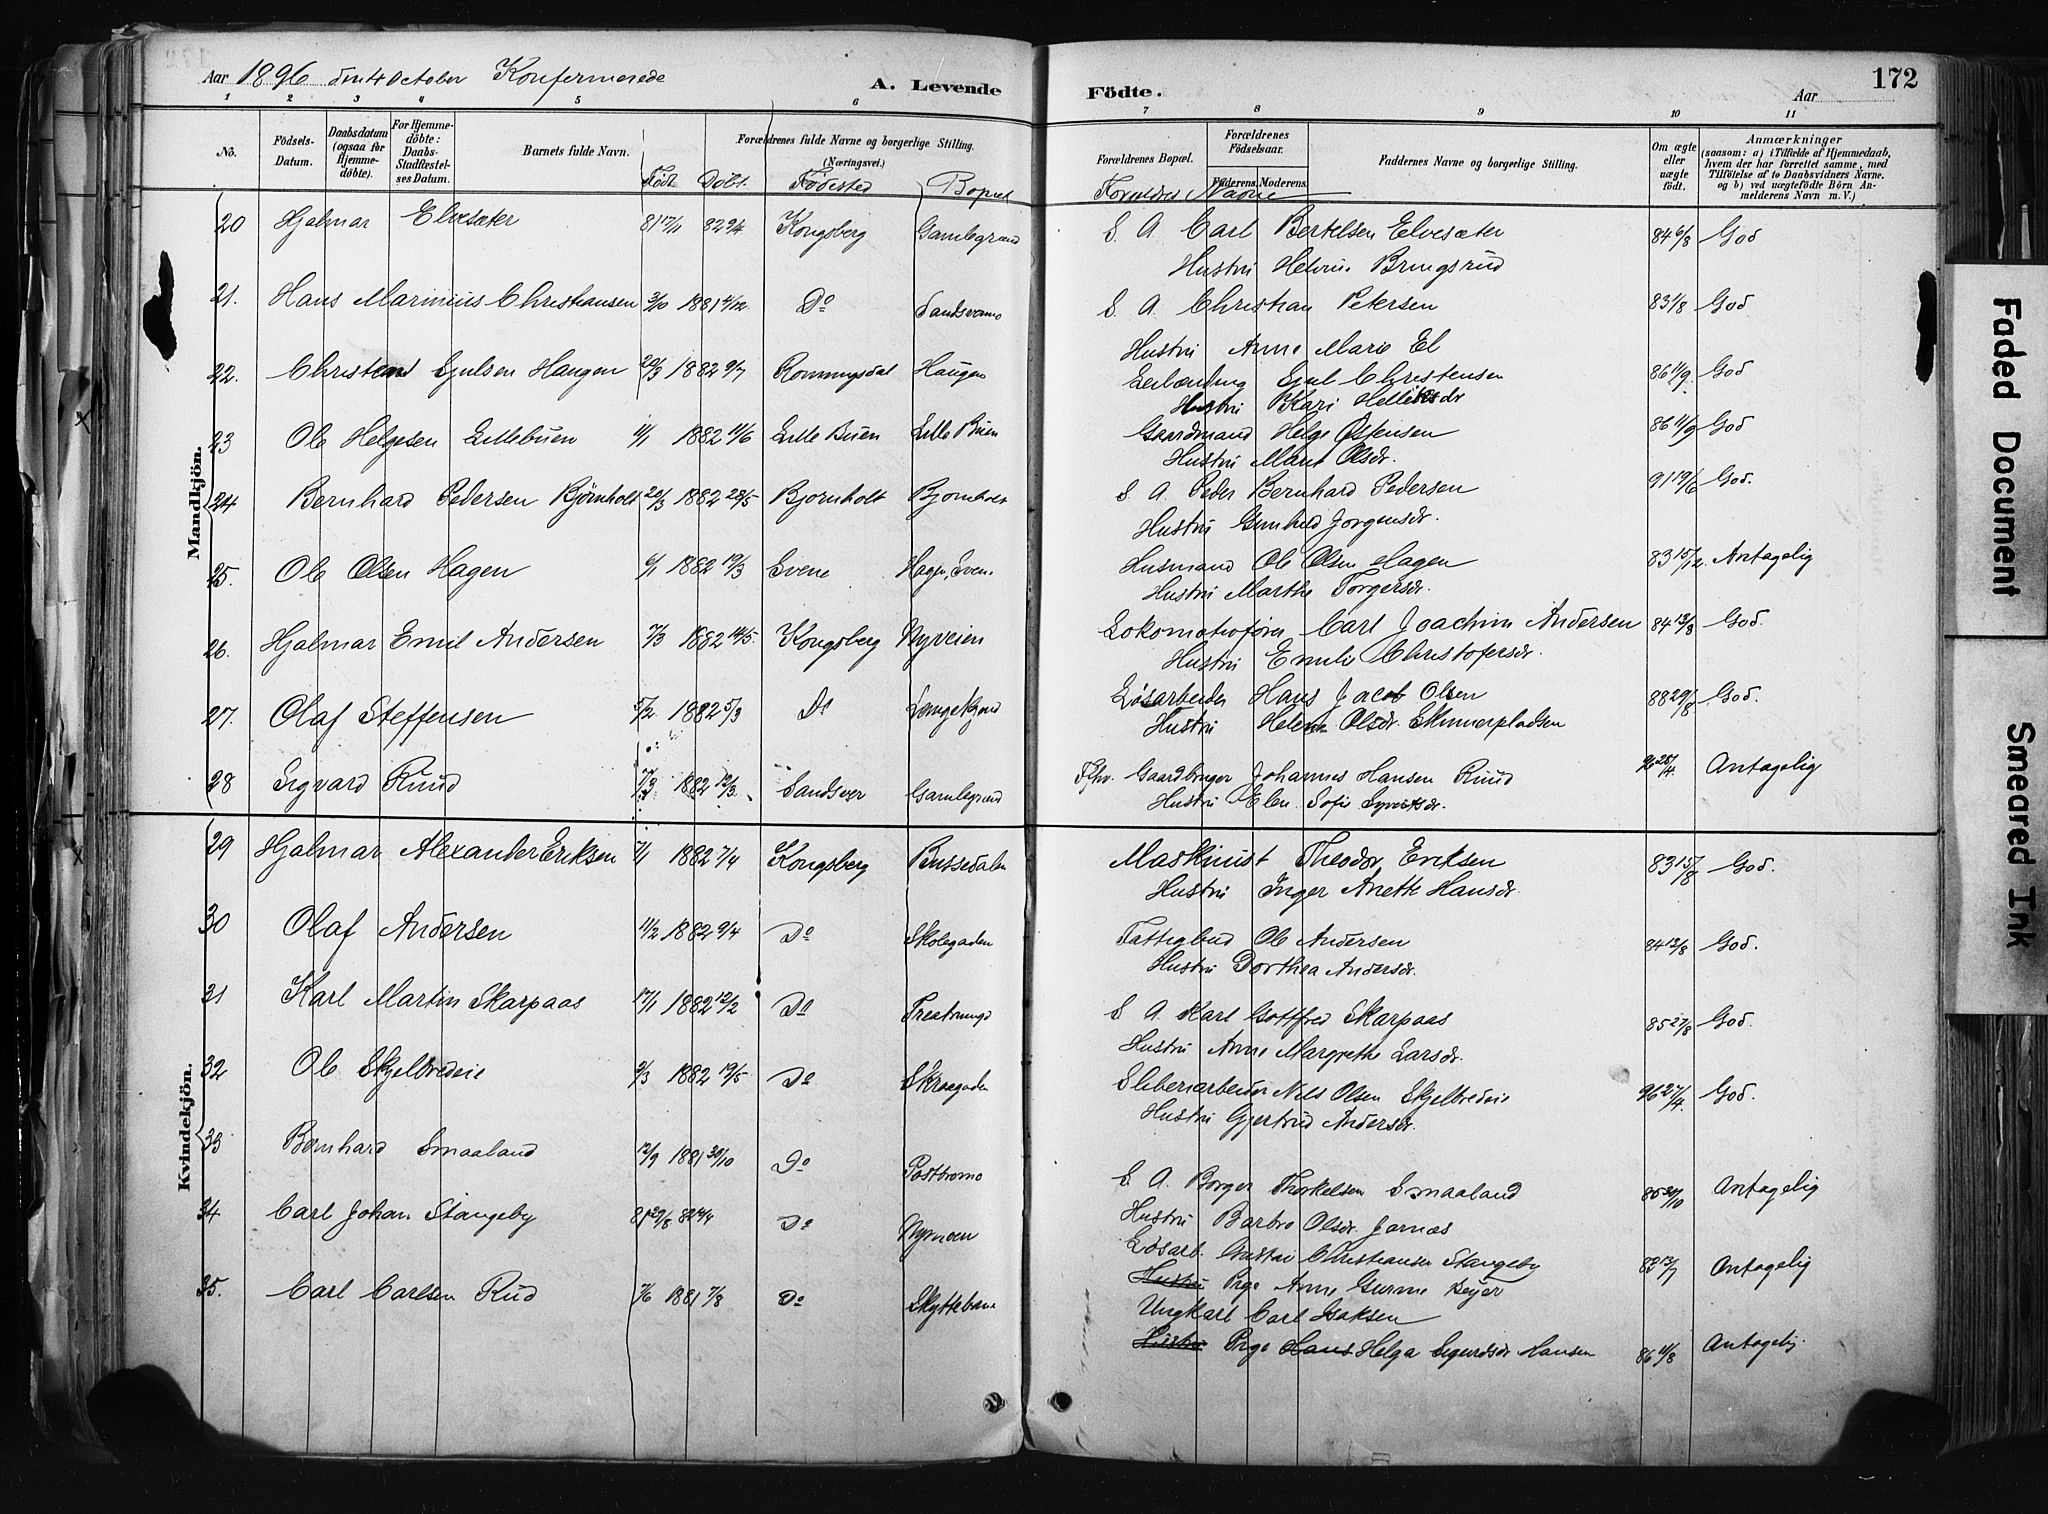 Aar 1896 den 4 October Konfermerede A. Levende
Födte. Aar 172
1 2 3 4 5 6
7 8 9 10 11
No. Födsels-Datum. Daabsdatum (ogsaa for Hjemme-döbte). For Hjemme-döbte: Daabs-Stadfæstel-ses Datum. Barnets fulde Navn. Forældrenes fulde Navne og borgerlige Stilling. (Næringsvei.)
Født Døbt. Fødested Bopæl
Forældrenes Bopæl. Forældrenes Födselsaar. Faderens. Moderens. Faddernes Navne og borgerlige Stilling. Om ægte eller uægte födt. Anmærkninger (saasom: a) i Tilfælde af Hjemmedaab, hvem der har forrettet samme, med Tilföielse af to Daabsvidners Navne. og b) ved uægtefödte Börn An-melderens Navn m. V.)
Forældres Navne
Mandkjön.
20 Hjalmar Elvesæter 81 17/11 82 9/4 Kongsberg Gamlegrænd
S. A. Carl Bertelsen Elvesæter 84 6/8 God
Hustru Helvine Bringsrud
21. Hans Marinius Christiansen 3/10 1881 4/12 Do Sandsværmo
S. A. Christian Petersen 83 1/8 God
Hustru Anne Marie El
22. Christen Ejulsen Haugen 20/3 1882 9/7 Rommigsdal Haugen
Leilænding Ejul Christensen 86 11/9. God
Hustru Kari
23 Ole Helgesen Lillebuen 11/1 1882 11/6 Lille Buen Lille Buen
Gaardmand Helge Østensen 86 11/9 God
Hustru Marit Olsdr.
24 Bernhard Pedersen Bjørnholt 20/3 1882 28/5 Bjørnholt Bjørnholt
S. A. Peder Bernhard Pedersen 91 19/6 God.
Hustru Gunhild Jørgensdr.
25. Ole Olsen Hagen 6/1 1882 19/3 Svene Hagen, Svene
Husmand Ole Olsen Hagen 83 15/12. Antagelig
Hustru Marthe Torgersdr.
26. Hjalmar Emil Andersen 7/3 1882 14/5 Kongsberg Nyveien
Lokomotivfører Carl Joachim Andersen 84 13/8 God.
Hustru Emilie Christofersdr.
27. Olaf Steffensen 5/2 1882 5/3 Do
Løsarbeider Hans Jacob Olsen 88 29/8 God.
Hustru Helene Olsdr. Skinnerpladsen
28 Sigvard Ruud 7/3 1882 19/3 Sandsver Gamlegrænd
Gaardbruger Johannes Hansen Ruud 96 25/4. Antagelig
Hustru Elen Sofie Syvertsdr.
Kvindekjön.
29 Hjalmar Alexander Eriksen 7/1 1882 7/4 Kongsberg Bussedalen
Maskinist Theodor Eriksen 83 15/8 God.
Hustru Inger Anette Hansdr.
30 Olaf Andersen 11/2 1882 9/4 Do Skolegaden
Fattigbud Ole Andersen 84 12/8 God.
Hustru Dorthea Andersdr.
31 Karl Martin Skarpaas 17/1 1882 12/2 Do
S. A. Karl Gottfred Skarpaas 85 27/8 God.
Hustru Anne Margrethe Larsdr.
32 Ole Skjelbredeie 9/3 1882 19/5 Do Skroegaden
Sliberiarbeider Nils Olsen Skjelbredeie 96 27/4. God.
Hustru Gjertrud Andersdr.
33 Bernhard Smaaland 12/9 1881 30/10 Do Postbromo
S. A. Borger Thorkelsen Smaaland 85 30/10 Antagelig
Hustru Barbro Olsdr. Jarnæs
34 Carl Johan Stangeby 81 29/8 82 14/4 Do Nymoen
Løsarb. Gustav Christiansen Stangeby 83 13/7 Antagelig
Hustru Pige Anne Gurine Beyer
35. Carl Carlsen Rud 7/6 1881 7/8 Do Skyttebane
Ungkarl Carl Isaksen
Hustru Pige Hans Helga Sigurdsdr Hansen 86 11/8 Antagelig.
Faded Document
Smeared Ink